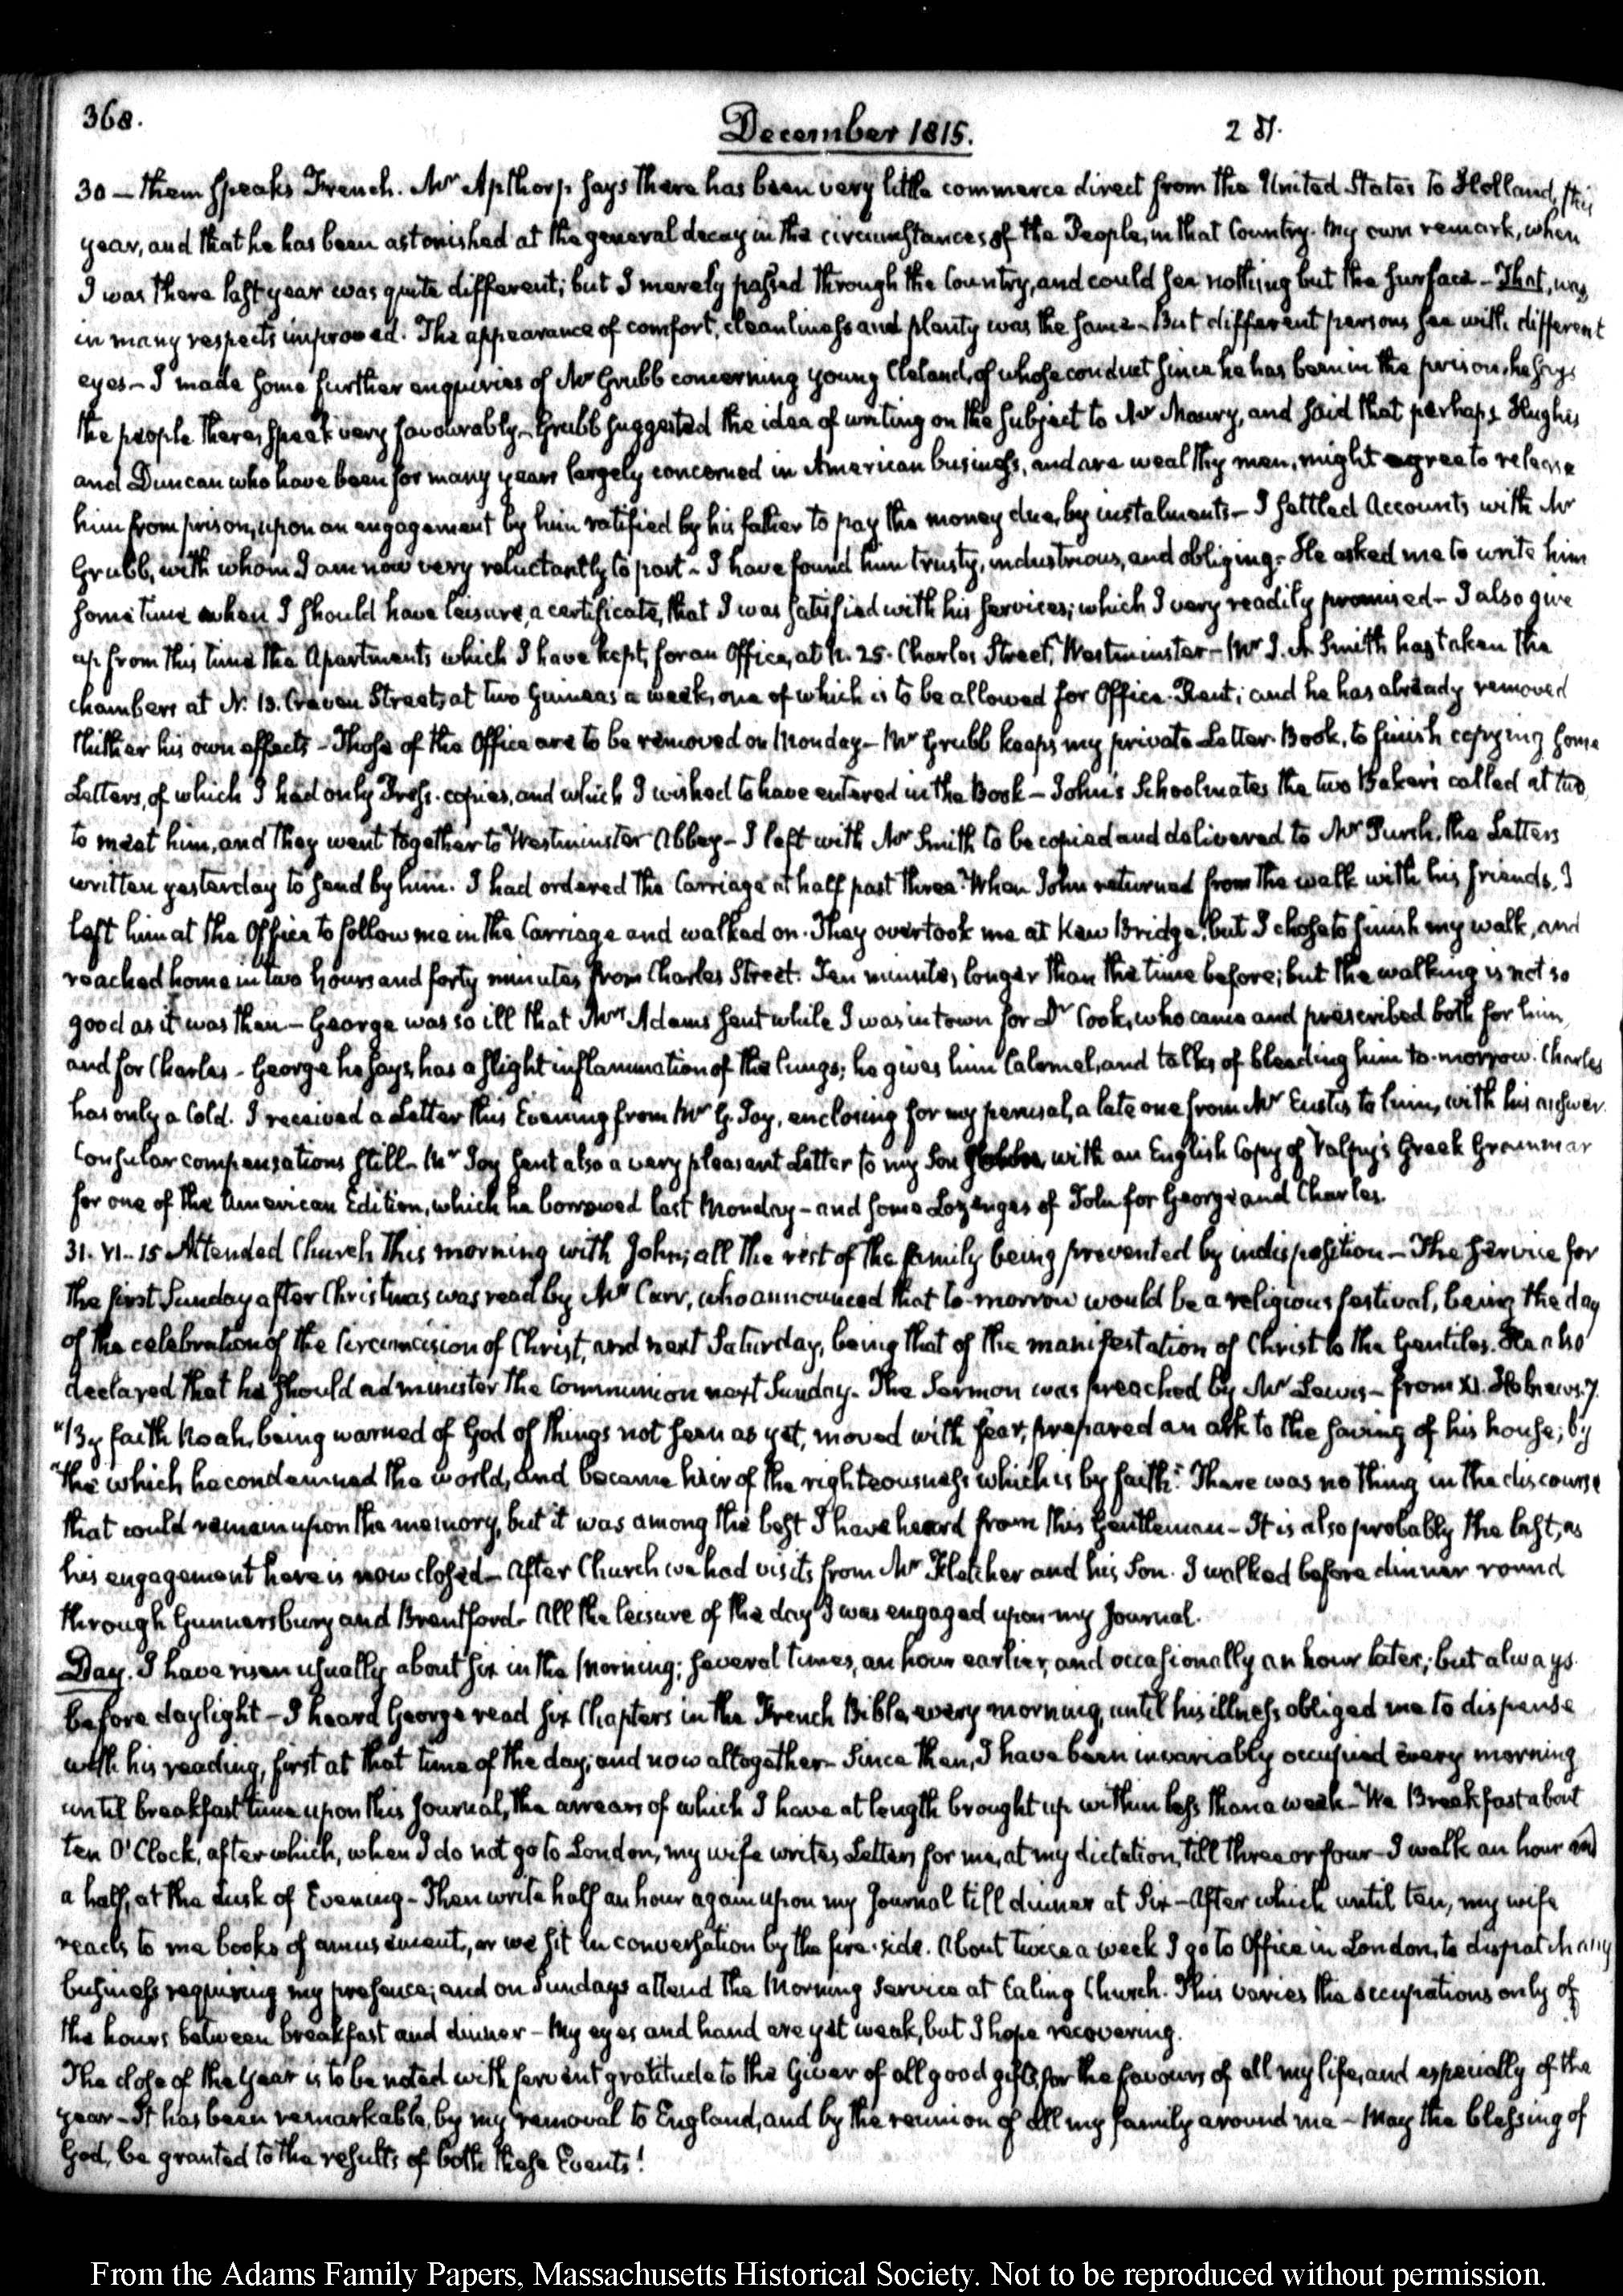 368.
December 1815.
30 — them speaks French. Mr Apthorp says there has been very little commerce direct from the United States to Holland, this
year, and that he has been astonished at the general decay in the circumstances of the People, in that Country. My own remark, when
I was there last year was quite different; but I merely passed through the Country, and could see nothing but the surface – That, was
in many respects improved. The appearance of comfort, cleanliness and plenty was the same – But different persons see with different
eyes – I made some further enquiries of Mr Grubb concerning young Cleland, of whose conduct since he has been in the prison, he says
the people there, speak very favourably – Grubb suggested the idea of writing on the subject to Mr Maury, and said that perhaps Hughes
and Duncan who have been for many years largely concerned in American business, and are wealthy men, might agree to release
him from prison, upon an engagement by him ratified by his father to pay the money due, by instalments – I settled Accounts with Mr
Grubb, with whom I am now very reluctantly to part – I have found him trusty, industrious, and obliging – He asked me to write him
some time when I should have leisure, a certificate, that I was satisfied with his services; which I very readily promised – I also give
up from this time the Apartments which I have kept, for an Office, at N. 25. Charles Street, Westminster – Mr J. A. Smith has taken the
chambers at N. 13. Craven Street, at two Guineas a week, one of which is to be allowed for Office-Rent; and he has already removed
thither his own effects – Those of the Office are to be removed on Monday – Mr Grubb keeps my private Letter-Book, to finish copying some
Letters, of which I had only Press-copies, and which I wished to have entered in the Book – John's Schoolmates the two Bakers called at two,
to meet him, and they went together to Westminster Abbey – I left with Mr Smith to be copied and delivered to Mr Pursh, the Letters
written yesterday to send by him. I had ordered the Carriage at half past three. When John returned from the walk with his friends, I
left him at the Office to follow me in the Carriage and walked on. They overtook me at Kew Bridge, but I chose to finish my walk, and
reached home in two hours and forty minutes from Charles Street. Ten minutes longer than the time before; but the walking is not so
good as it was then – George was so ill that Mrs Adams sent while I was in town for Dr Cook, who came and prescribed both for him,
and for Charles – George he says, has a slight inflammation of the lungs; he gives him Calomel, and talks of bleading him to-morrow. Charles
has only a Cold. I received a Letter this Evening from Mr G. Joy, enclosing for my perusal, a late one from Mr Eustis to him, with his answer.
Consular compensations still. Mr Joy sent also a very pleasant Letter to my Son with an English Copy of Valpy's Greek Grammar
for one of the American Edition, which he borrowed last Monday – and some Lozenges of Tolu for George and Charles.
31. VI..15 Attended Church this morning with John; all the rest of the family being prevented by indisposition – The service for
the first Sunday after Christmas was read by Mr Carr, who announced that to-morrow would be a religious festival, being the day
of the celebration of the Circumcision of Christ, and next Saturday, being that of the manifestation of Christ to the Gentiles. He also
declared that he should administer the Communion next Sunday. The Sermon was preached by Mr Lewis – from XI. Hebrews. 7.
"By faith Noah, being warned of God of things not seen as yet, moved with fear, prepared an ark to the saving of his house; by
"the which he condemned the world, and became heir of the righteousness which is by faith." There was nothing in the discourse
that could remain upon the memory, but it was among the best I have heard from this Gentleman – It is also probably the last, as
his engagement here is now closed – After Church we had visits from Mr Fletcher and his Son. I walked before dinner round
through Gunnersbury and Brentford. All the leisure of the day I was engaged upon my Journal.
Day. I have risen usually about six in the Morning; several times, an hour earlier, and occasionally an hour later; but always
before daylight – I heard George read six Chapters in the French Bible, every morning, until his illness obliged me to dispense
with his reading, first at that time of the day; and now altogether – Since then, I have been invariably occupied every morning
until breakfast time upon this Journal, the arrears of which I have at length brought up within less than a week – We Breakfast about
ten O'Clock, after which, when I do not go to London, my wife writes Letters for me, at my dictation, till three or four – I walk an hour and
a half, at the dusk of Evening – Then write half an hour again upon my Journal till dinner at Six – After which until ten, my wife
reads to me books of amusement, or we sit in conversation by the fire-side. About twice a week I go to Office in London, to dispatch any
business requiring my presence; and on Sundays attend the Morning Service at Ealing Church. This varies the occupations only of
the hours between breakfast and dinner – My eyes and hand are yet weak, but I hope recovering.
The close of the Year is to be noted with fervent gratitude to the Giver of all good gifts, for the favours of all my life, and especially of the
year – It has been remarkable, by my removal to England, and by the reunion of all my family around me – May the blessing of
God, be granted to the results of both these Events!
From the Adams Family Papers, Massachusetts Historical Society. Not to be reproduced without permission.